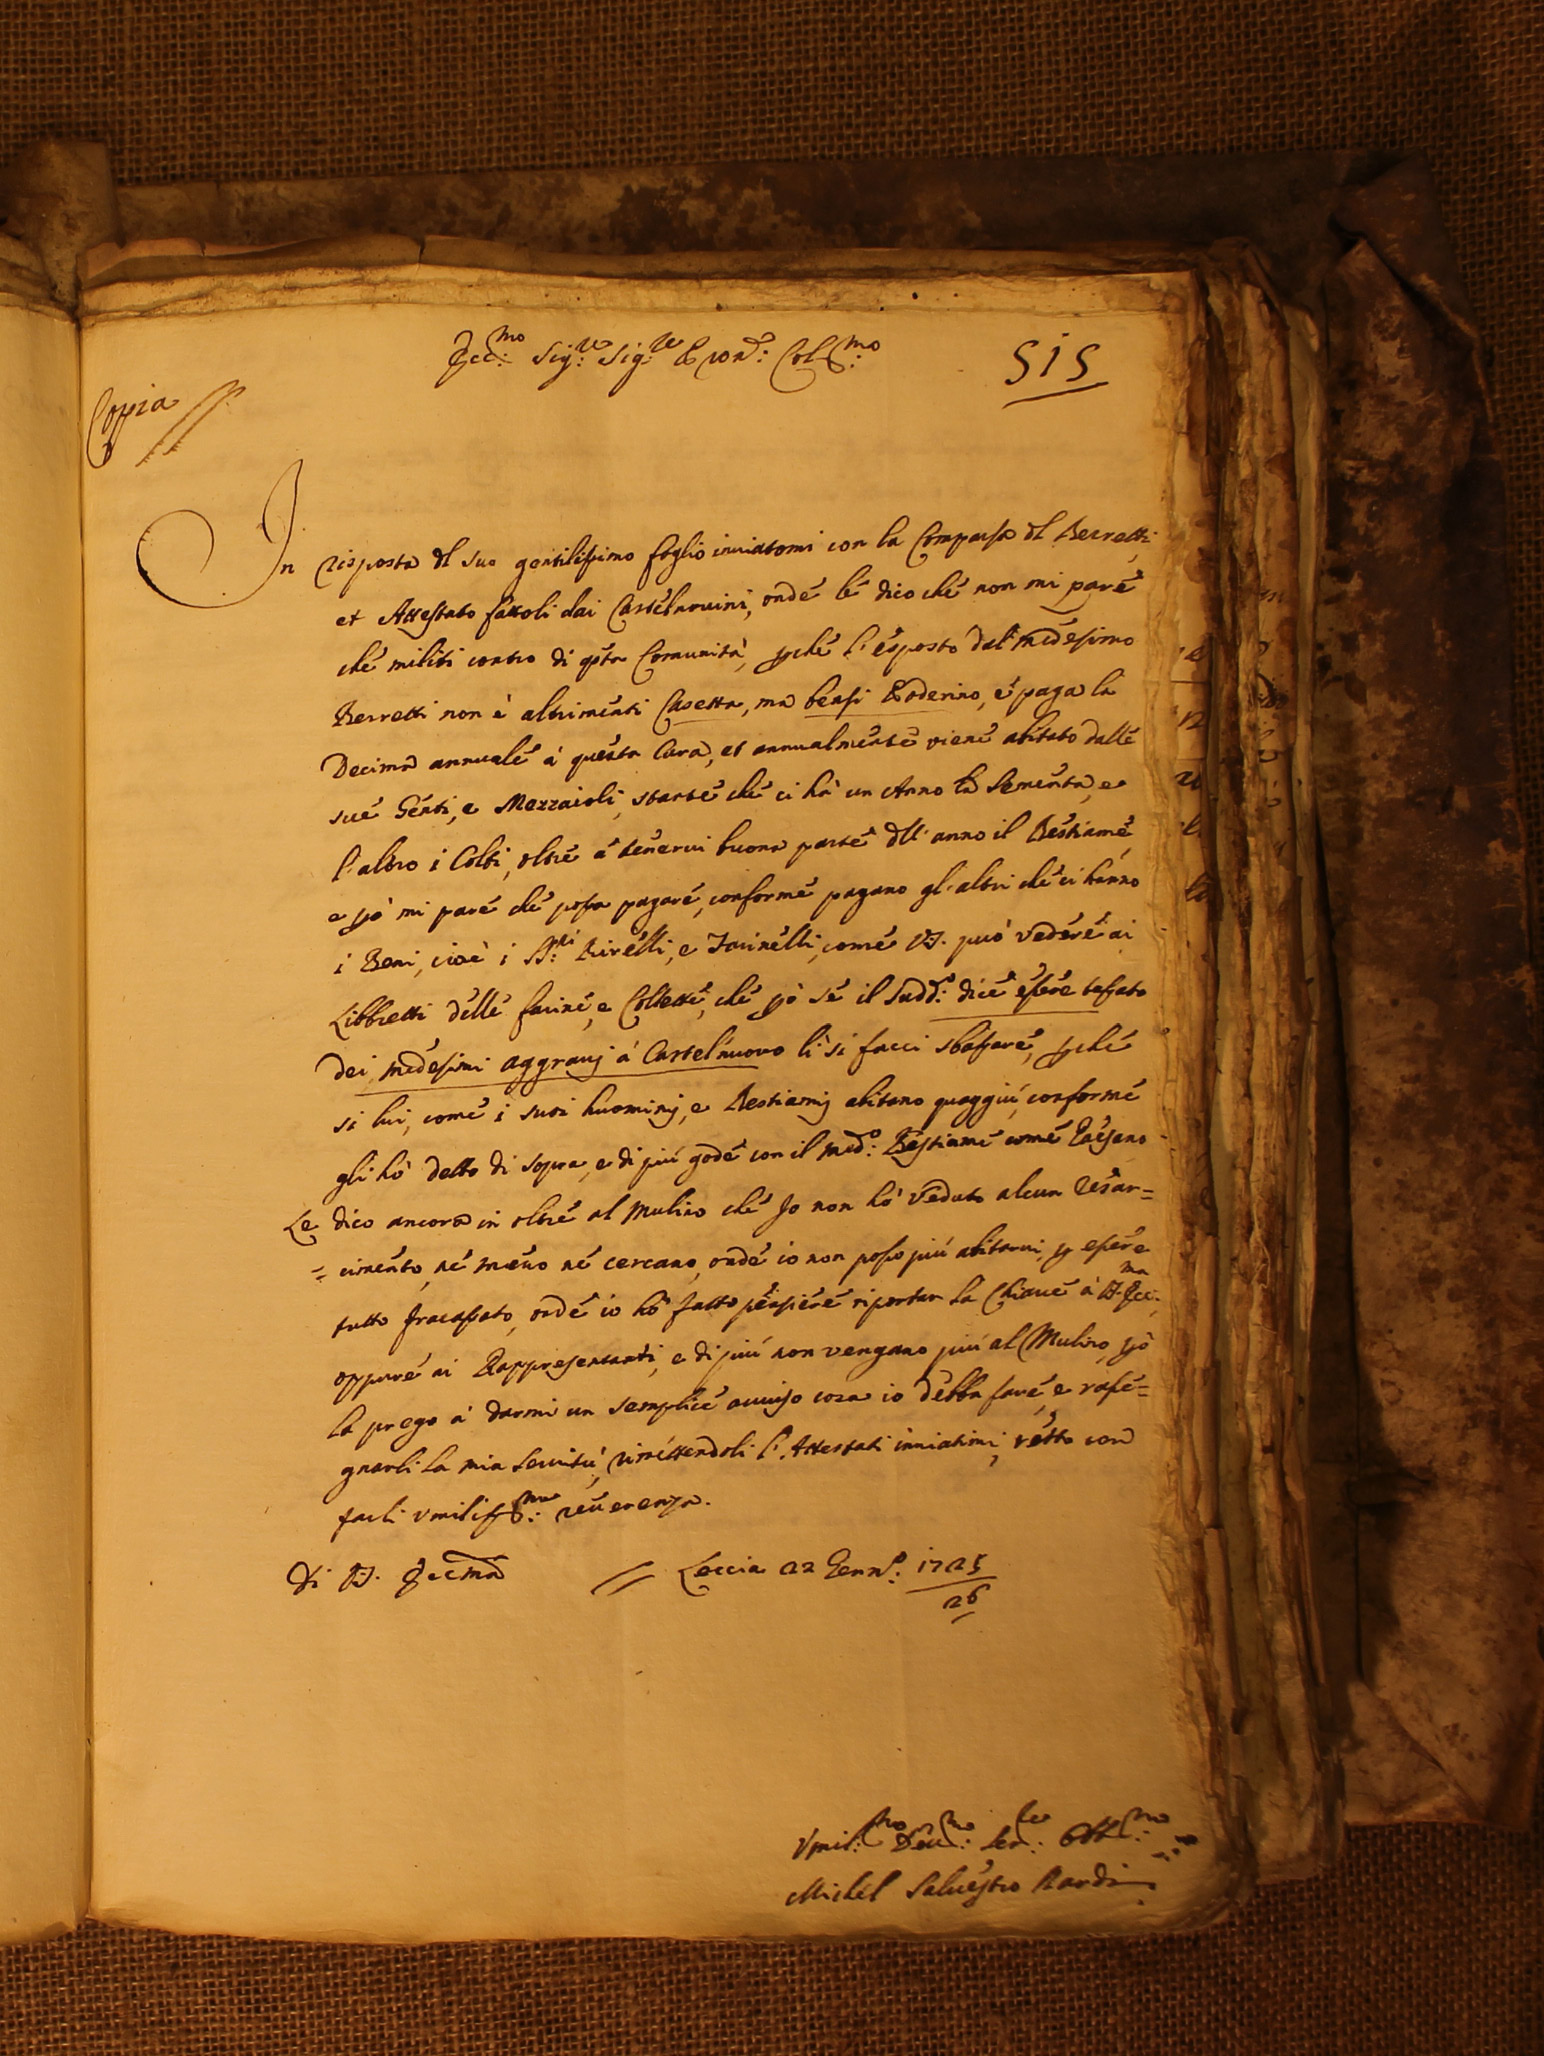 Ecc:mo Sig:re Sig:re e Pron: Col:mo
515
Copia
In risposta del suo gentilissimo foglio inviatomi con la Comparsa del Berretti
et Attestato fattoli dai Castelnuovini, onde le dico che non mi pare
che militi contro di qsta Comunità, pche l'esposto dal medesimo
Berretti non è altrimenti Casetta, ma bensi Poderino, e paga la
Decima annuale à questa Cura, et annualmente viene abitato dalle
sue Genti, e Mezzaioli, stante che ci hà un Anno la Sementa, e
l'altro i Colti, oltre à tenervi buona parte dell'anno il Bestiame,
e pò mi pare che possa pagare, conforme pagano gl'altri che ci hanno
i Beni, cioè i SS:ri e come VS. può vedere ai
Libbretti delle farine, e Collette, che pò se il Sudd:o dice essere tassato
dei medesimi aggravj à Castelnuovo li si facci sbassare, pche
si lui, come i suoi huominj, e Bestiamj abitano quaggiù, conforme
gli hò detto di sopra, e di più gode con il med:o Bestiame come Paesano
Le dico ancora in oltre al Mulino che Io non hò Veduto alcun resar=
=cimento, nè meno nè cercano, onde io non posso più abitarvi, p essere
tutto fracassato, onde io hò fatto pensiere riportar la Chiave à VS. Ecc:ma,
oppure ai Rappresentanti, e di più non vengano più al Mulino, pò
la prego à darmi un semplice avviso cosa io debba fare, e rasse=
gnarli la mia Servitù, rimettendoli l'Attestati inviatimi, resto con
farli Umiliss:ma reverenza.
Di VS. Eccma // Leccia 22 Genn:o 1725
26
Umil:mo Dev:mo Ser:re Obb:mo
Michel Salvestro Nardi